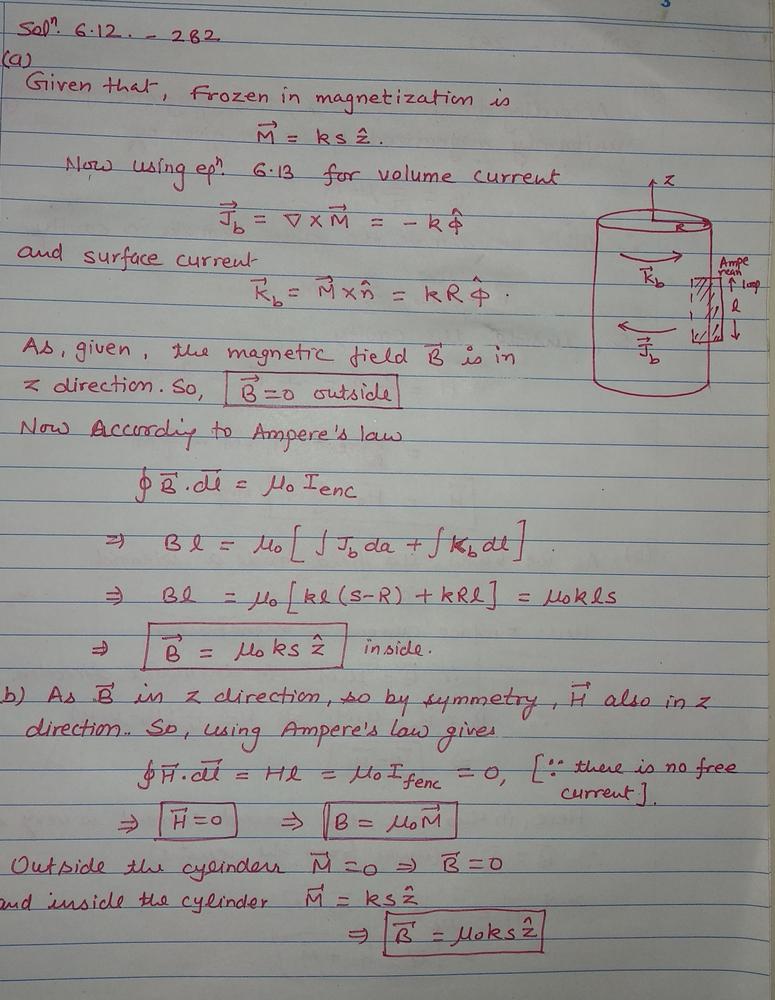 3
Solⁿ. 6.12. - 282
(a)
Given that, Frozen in magnetization is
M⃗ = ks ẑ.
Now using eqⁿ. 6.13 for volume current
J⃗_b = ∇ × M⃗ = - k φ̂
and surface current
K⃗_b = M⃗ × n̂ = kR φ̂.
z
R
K⃗_b
J⃗_b
Ampe
rean
loop
l
As, given, the magnetic field B⃗ is in
z direction. So, B⃗ = 0 outside
Now According to Ampere's law
∮ B⃗ . dl⃗ = μ₀ I_enc
⇒ B l = μ₀ [ ∫ J_b da + ∫ K_b dl ]
⇒ Bl = μ₀ [ kl (s-R) + kRl ] = μ₀kls
⇒ B⃗ = μ₀ ks ẑ inside.
b) As B⃗ in z direction, so by symmetry, H⃗ also in z
direction. So, using Ampere's law gives
∮ H⃗ . dl⃗ = Hl = μ₀ I_fenc = 0, [∵ there is no free
current].
⇒ H⃗ = 0 ⇒ B = μ₀M⃗
Outside the cylinders M⃗ = 0 ⇒ B⃗ = 0
and inside the cylinder M⃗ = ks ẑ
⇒ B⃗ = μ₀ks ẑ